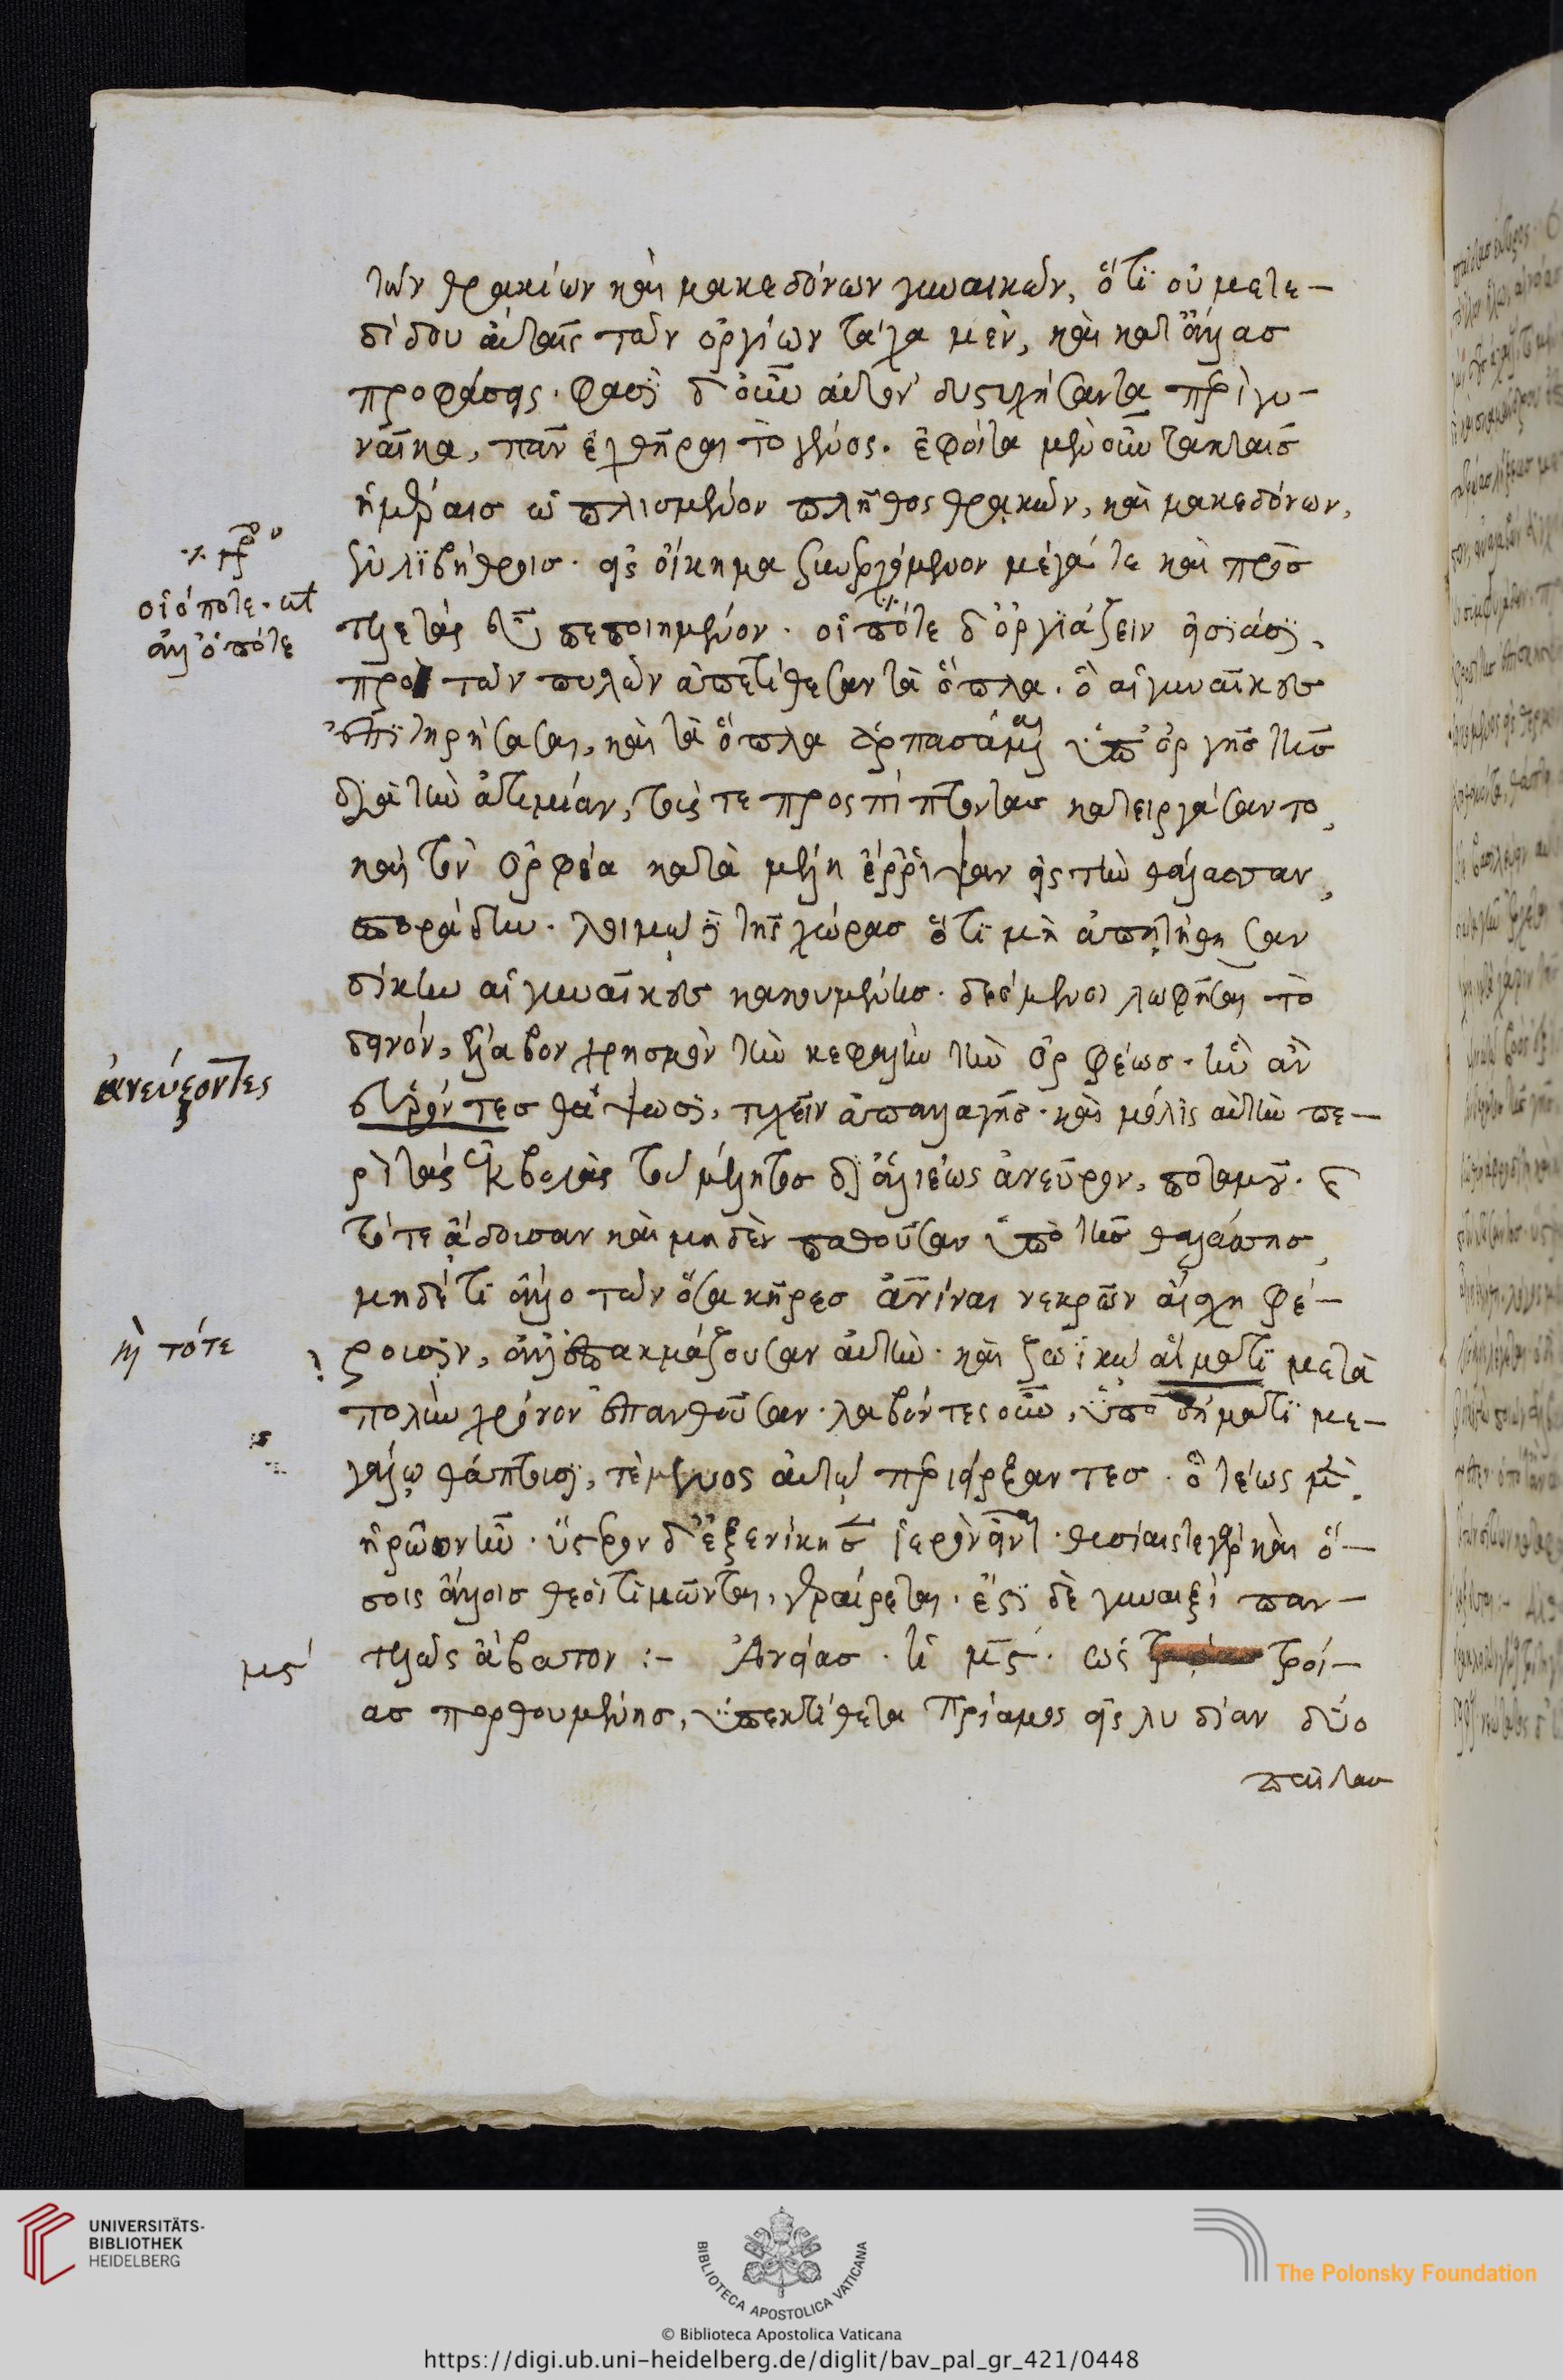 τῶν θρᾳκίων καὶ μακεδόνων γυναικῶν, ὅτι οὐ μετε-
δίδου αὐταῖς τῶν ὀργίων τάχα μὲν, καὶ κατ' ἄλλας
προφάσεις. φασὶ δ' οὖν αὐτὸν δυστυχήσαντα περὶ γυ-
ναῖκα, πᾶν ἐχθῆραι τὸ γένος. ἐφοίτα μὲν οὖν τακταῖς
ἡμέραις ὡπλισμένον πλῆθος θρᾳκῶν, καὶ μακεδόνων,
ἐν λιβήθροις. εἰς οἴκημα συνερχόμενον μέγα τε καὶ πρὸς
τελετὰς εὖ πεποιημένον. οἳ πότε δ' ὀργιάζειν εἰσίασι,
πρὸ τῶν πυλῶν ἀπετίθεσαν τὰ ὅπλα. ὃ αἱ γυναῖκες
ἐπιτηρήσασαι, καὶ τὰ ὅπλα ἁρπασάμεναι ὑπ' ὀργῆς τῆς
διὰ τὴν ἀτιμίαν, τούς τε προσπίπτοντας κατειργάσαντο,
καὶ τὸν ὀρφέα κατὰ μέλη ἔρριψαν εἰς τὴν θάλασσαν,
σποράδην. λοιμῷ δὲ τῆς χώρας ὅτι μὴ ἀπῃτήθησαν
δίκην αἱ γυναῖκες κακουμένης. δεόμενοι λωφῆσαι τὸ
δεινόν, ἔλαβον χρησμὸν τὴν κεφαλὴν τὴν ὀρφέως. ἢν ἀν
ευρόντες θάψωσι, τυχεῖν ἀπαλλαγῆς. καὶ μόλις αὐτὴν πε-
ρὶ τὰς ἐκβολὰς τοῦ μέλητος δι' ἁλιέως ἀνεῦρον, ποταμοῦ. καὶ
τότε ᾄδουσαν καὶ μηδὲν παθοῦσαν ὑπὸ τῆς θαλάσσης,
μηδέ τι ἄλλο τῶν ὅσα κῆρες ἀνθρώπιναι νεκρῶν αἴσχη φέ-
ρουσιν, ἀλλ' ἐπακμάζουσαν αὐτὴν. καὶ ζωϊκῷ αἵματι μετὰ
πολὺν χρόνον ἐπανθοῦσαν. λαβόντες οὖν, ὑπὸ σήματι με-
γάλῳ θάπτουσι, τέμενος αὐτῷ περιείρξαντες. ὃ τέως μὲν
ἡρῷον ἦν. ὕστερον δ' ἐξενίκησεν ἱερὸν εἶναι. θυσίαις τε γὰρ καὶ ὅ-
σοις ἄλλοις θεοὶ τιμῶνται, γεραίρεται. ἔστι δὲ γυναιξὶ παν-
τελῶς ἄβατον :- Αἰνείας. ἡ μϛ'. ὡς τροί-
ας πορθουμένης, ὑπεκτίθεται Πρίαμος εἰς λυδίαν δύο
παῖδας
·/· γρ
οἳ ὁπότε. καὶ
ἀλλ' ὁπότε
ἀνευρόντες
ἢ τότε
μϛ'
UNIVERSITÄTS-
BIBLIOTHEK
HEIDELBERG
BIBLIOTECA APOSTOLICA VATICANA
The Polonsky Foundation
© Biblioteca Apostolica Vaticana
https://digi.ub.uni-heidelberg.de/diglit/bav_pal_gr_421/0448